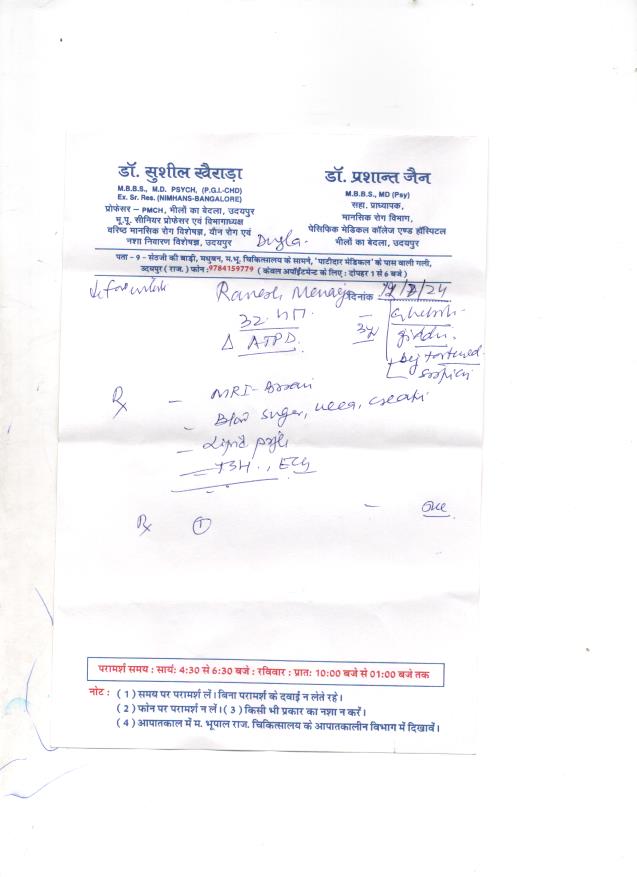 डॉ. सुशील खैराड़ा
M.B.B.S., M.D. PSYCH, (P.G.I.-CHD)
Ex. Sr. Res. (NIMHANS-BANGALORE)
प्रोफेसर – PMCH, भीलों का बेदला, उदयपुर
भू.पू. सीनियर प्रोफेसर एवं विभागाध्यक्ष
वरिष्ठ मानसिक रोग विशेषज्ञ, यौन रोग एवं
नशा निवारण विशेषज्ञ, उदयपुर
डॉ. प्रशान्त जैन
M.B.B.S., MD (Psy)
सहा. प्राध्यापक,
मानसिक रोग विभाग,
पेसिफिक मेडिकल कॉलेज एण्ड हॉस्पिटल
भीलों का बेदला, उदयपुर
पता – 9 - संठजी की बाड़ी, मधुबन, म.भू. चिकित्सालय के सामने, 'पाटीदार मेडिकल' के पास वाली गली,
उदयपुर ( राज. ) फोन :9784159779 ( केवल अपॉईटमेन्ट के लिए : दोपहर 1 से 6 बजे )
Ramesh दिनांक /24
32
Δ ATPD
3y
by tortured
Rx - MRI-Brain
- Blood sugar, urea, creati
- Lipid profile
- TSH., ECG
Rx ①
- one
परामर्श समय : सायं: 4:30 से 6:30 बजे : रविवार : प्रातः 10:00 बजे से 01:00 बजे तक
नोट : ( 1 ) समय पर परामर्श लें। बिना परामर्श के दवाई न लेते रहे।
( 2 ) फोन पर परामर्श न लें। ( 3 ) किसी भी प्रकार का नशा न करें।
( 4 ) आपातकाल में म. भूपाल राज. चिकित्सालय के आपातकालीन विभाग में दिखावें।